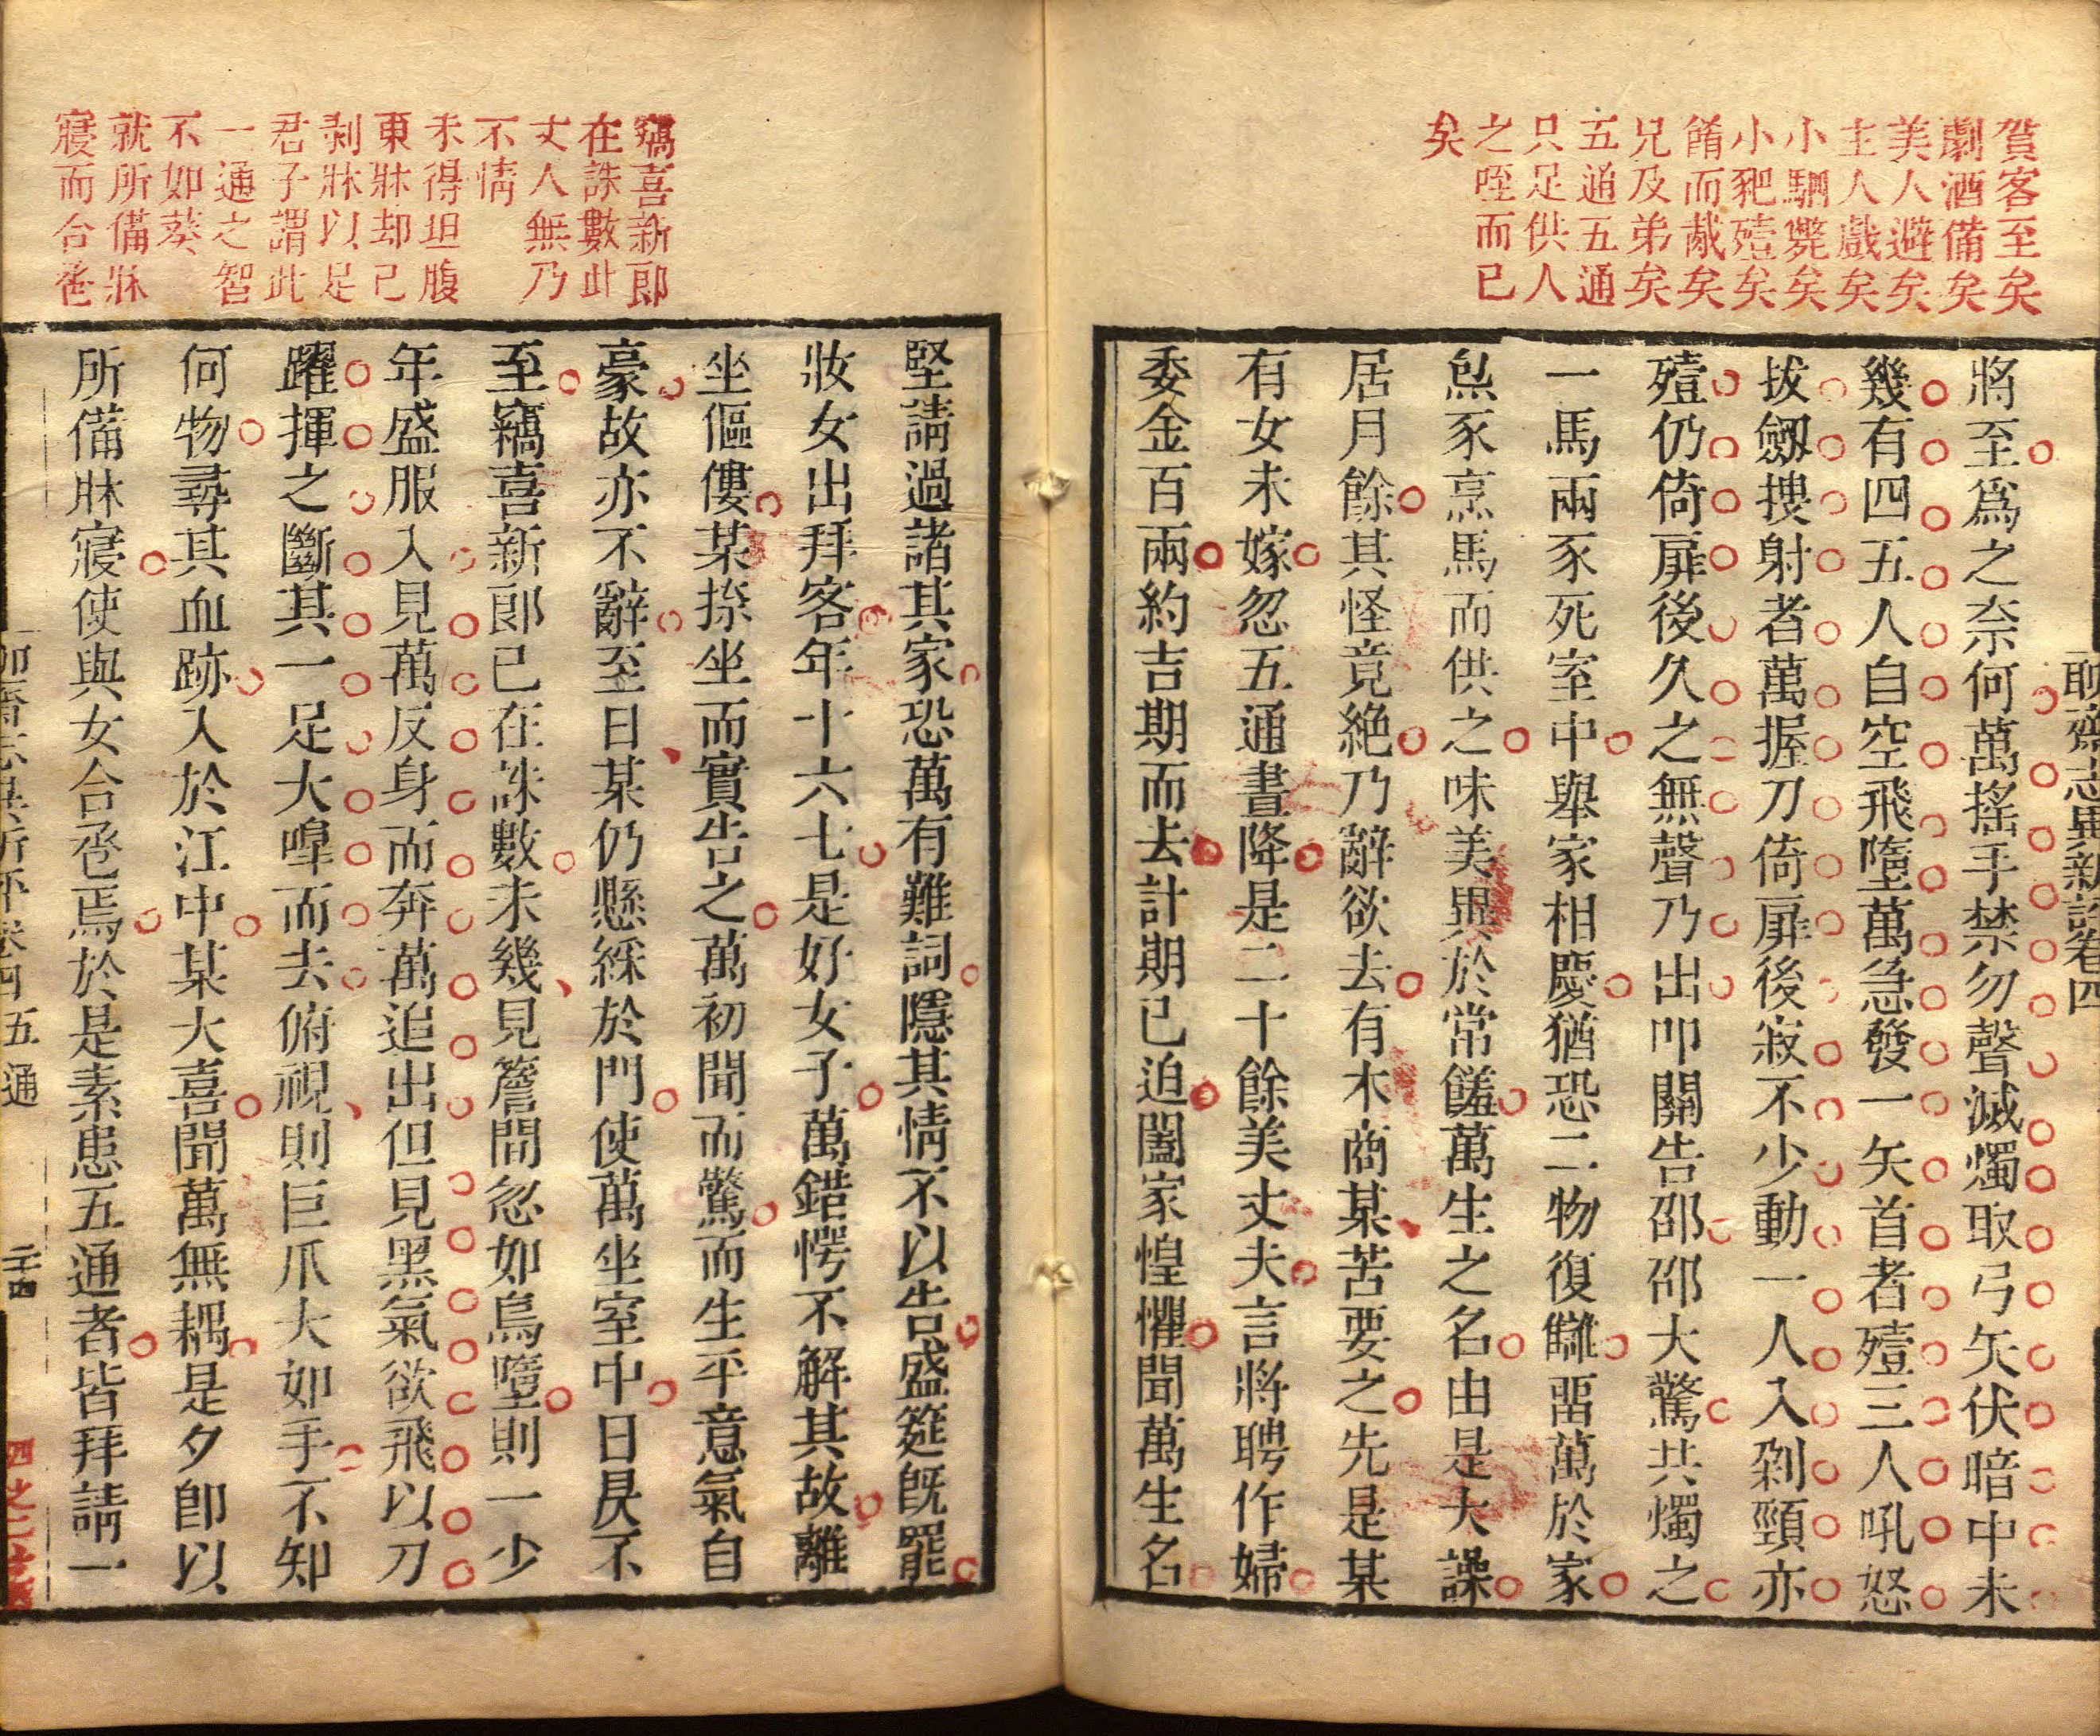 賀客至矣
劇酒備矣
美人避矣
主人戲矣
小駟斃矣
小豝殪矣
餚而胾矣
兄及弟矣
五通五通
只足供人
之咥而已
矣
聊齋志異新評卷四
將至爲之奈何萬搖手禁勿聲滅燭取弓矢伏暗中未
幾有四五人自空飛墮萬急發一矢首者殪三人吼怒
拔劔搜射者萬握刀倚扉後寂不少動一人入剁頸亦
殪仍倚扉後久之無聲乃出叩關告邵邵大驚共燭之
一馬兩豕死室中舉家相慶猶恐二物復讎畱萬於家
炰豕烹馬而供之味美異於常饈萬生之名由是大譟
居月餘其怪竟絶乃辭欲去有木商某苦要之先是某
有女未嫁忽五通晝降是二十餘美丈夫言將聘作婦
委金百兩約吉期而去計期已迫闔家惶懼聞萬生名
竊喜新郎
在誅數此
丈人無乃
不情
未得坦腹
東牀却已
剥牀以足
君子謂此
一通之智
不如葵
就所備牀
寢而合卺
堅請過諸其家恐萬有難詞隱其情不以告盛筵旣罷
妝女出拜客年十六七是好女子萬錯愕不解其故離
坐傴僂某捺坐而實告之萬初聞而驚而生平意氣自
豪故亦不辭至日某仍懸綵於門使萬坐室中日昃不
至竊喜新郎已在誅數未幾見簷間忽如鳥墮則一少
年盛服入見萬反身而奔萬追出但見黑氣欲飛以刀
躍揮之斷其一足大嘷而去俯視則巨爪大如手不知
何物尋其血跡入於江中某大喜聞萬無耦是夕卽以
所備牀寢使與女合卺焉於是素患五通者皆拜請一
聊齋志異新評卷四五通
二十四